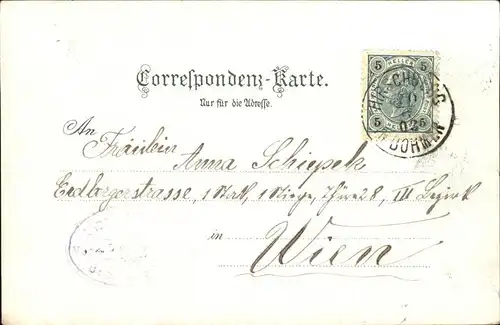 Correspondenz-Karte.
Nur für die Adresse.
5 HELLER 5
5 5
HIRSCHBERG
02
IN BÖHMEN
An
Fräulein Anna Schiepek
Erdbergerstrasse, 1 Stock, 1 Stiege, Thüre 28, III Bezirk
in
Wien